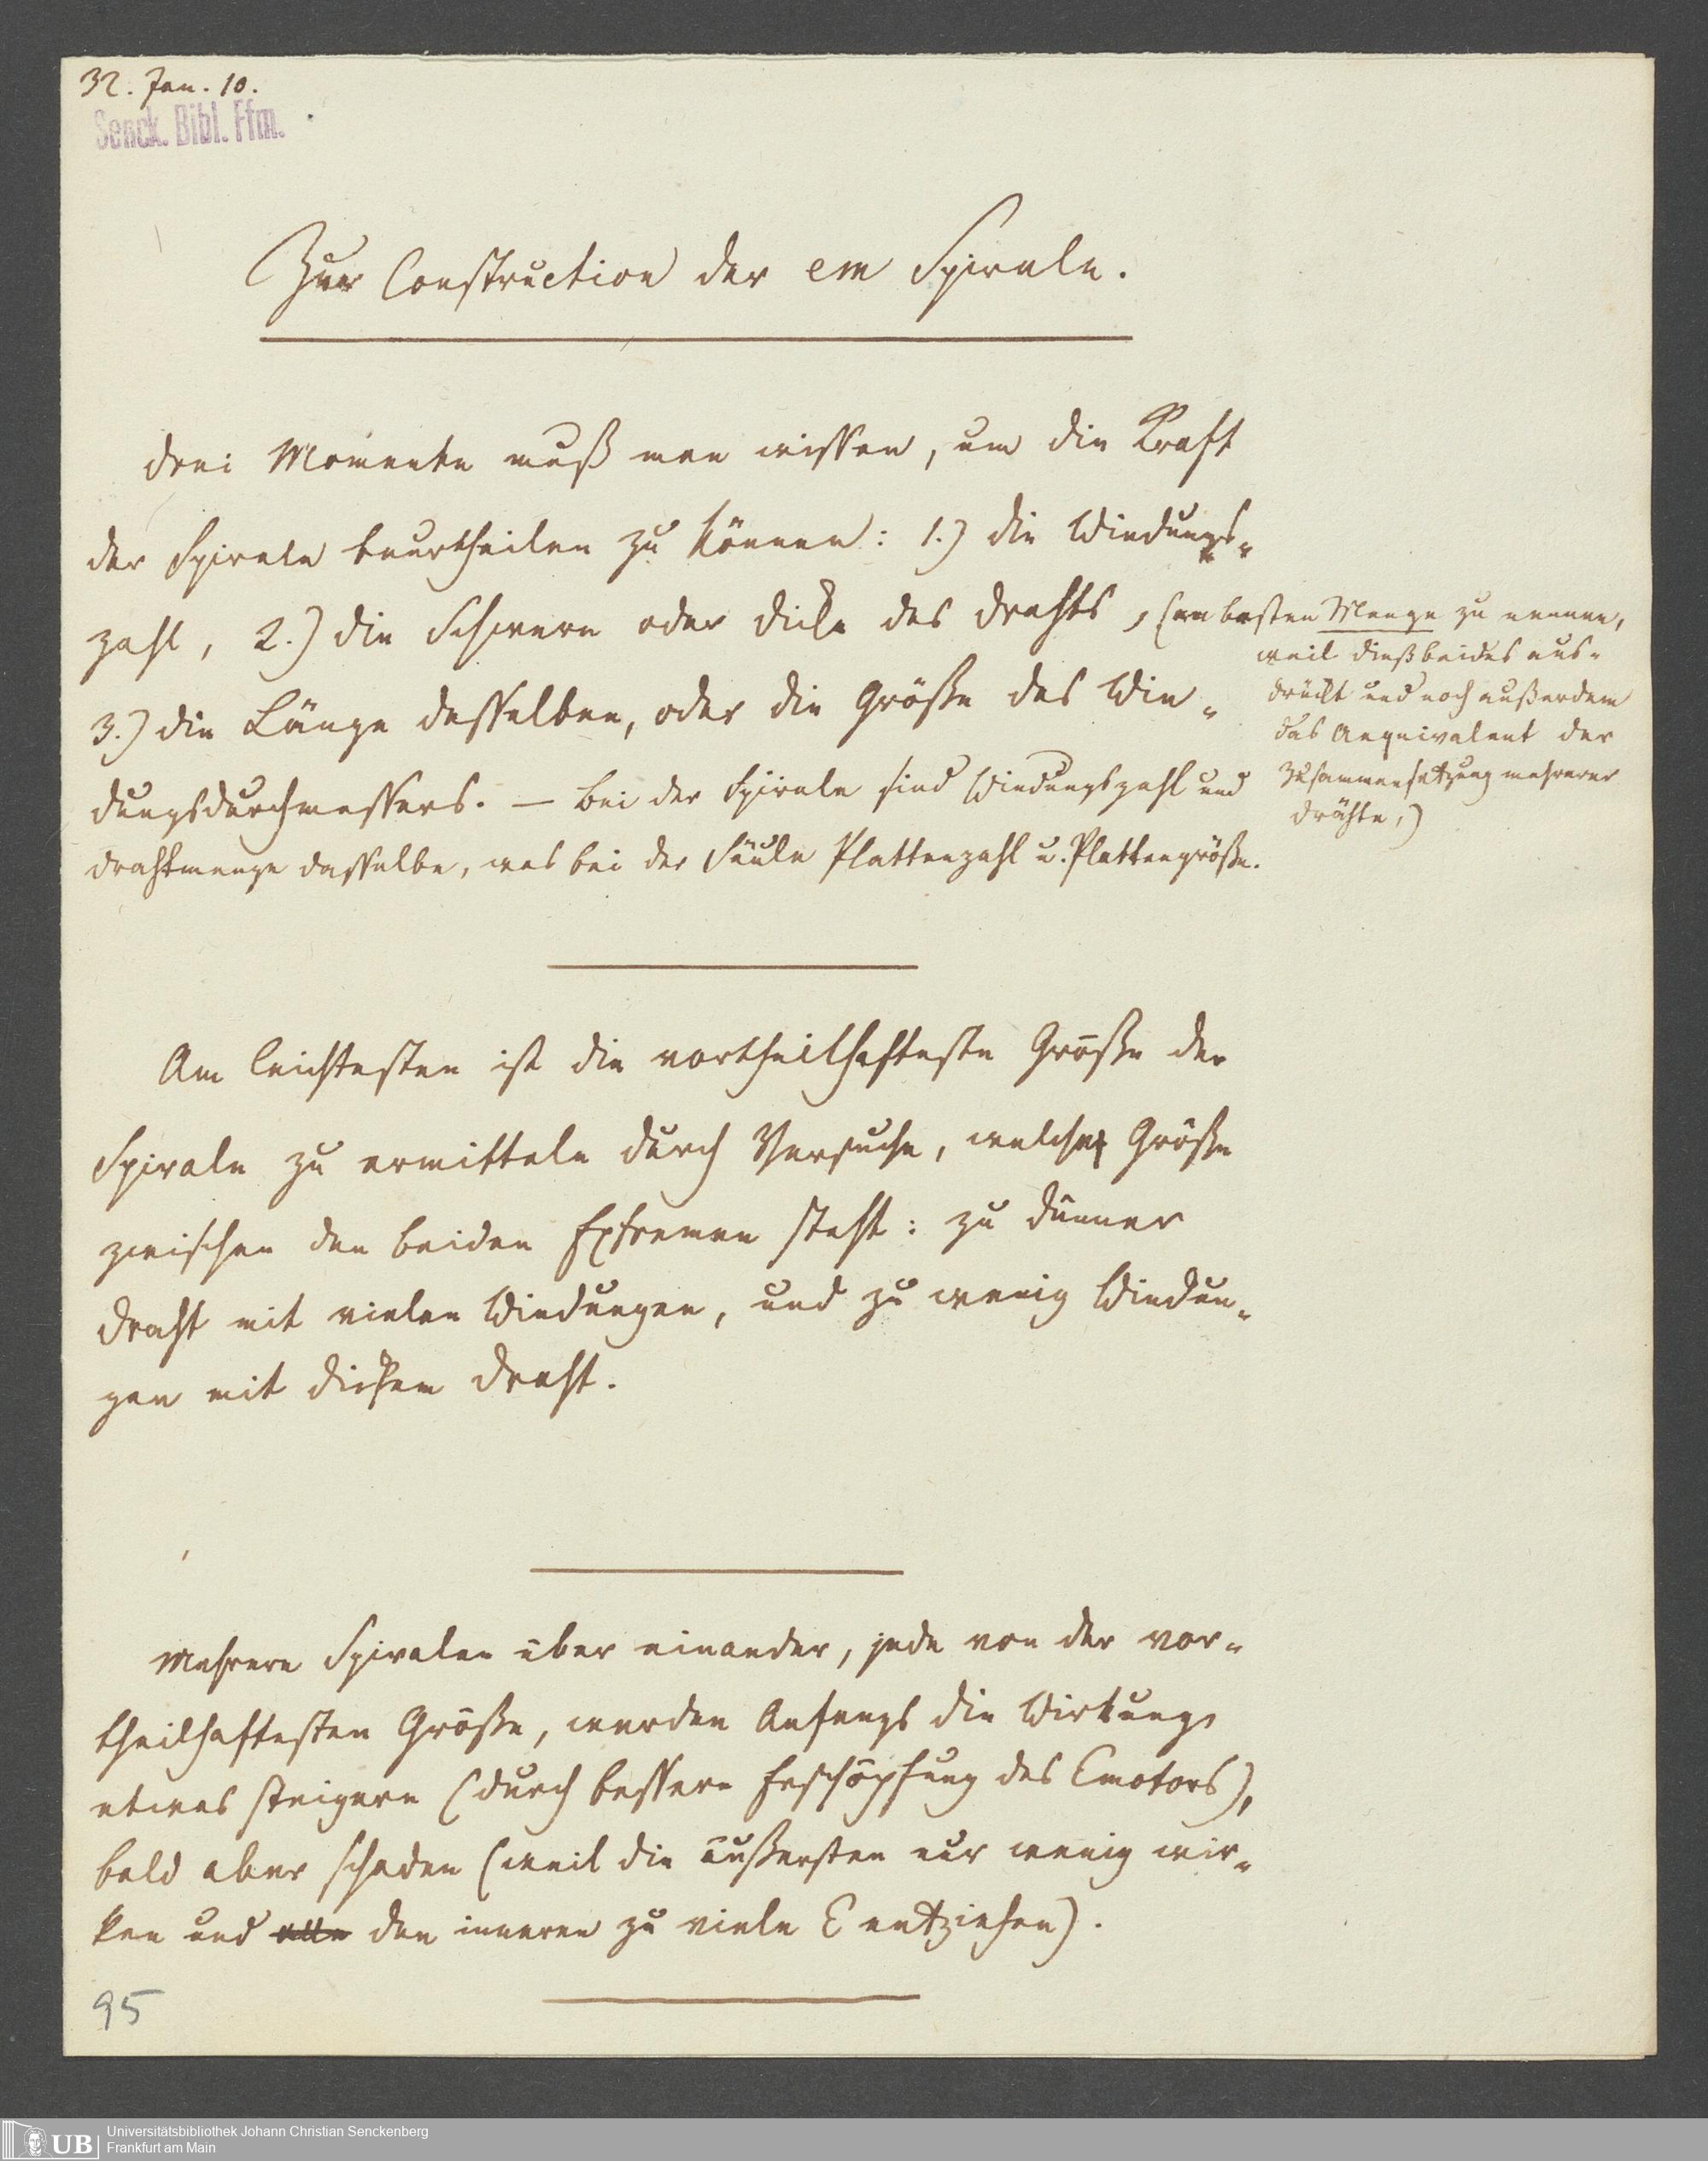 32. Jan. 10.
Senck. Bibl. Ffm.
Zur Construction der em Spirale.
Drei Momente muß man wissen, um die Kraft
der Spirale beurtheilen zu können: 1.) die Windungs-
zahl, 2.) die Schwere oder Dicke des Drahts, (am besten Menge zu nennen,
weil dieß beides aus-
drückt und noch außerdem
das Aequivalent der
Zusammensetzung mehrerer
Drähte,)
3.) die Länge desselben, oder die Größe des Win-
dungsdurchmessers. — Bei der Spirale sind Windungszahl und
Drahtmenge dasselbe, was bei der Säule Plattenzahl u. Plattengröße.
Am leichtesten ist die vortheilhafteste Größe der
Spirale zu ermitteln durch Versuche, welche Größe
zwischen den beiden Extremen steht: zu dünner
Draht mit vielen Windungen, und zu wenig Windun-
gen mit dickem Draht.
Mehrere Spiralen über einander, jede von der vor-
theilhaftesten Größe, werden Anfangs die Wirkung
etwas steigern (durch bessere Erschöpfung des Emotors),
bald aber schaden (weil die äußersten nur wenig wir-
ken und alle den inneren zu viele E entziehen).
95
UB
Universitätsbibliothek Johann Christian Senckenberg
Frankfurt am Main